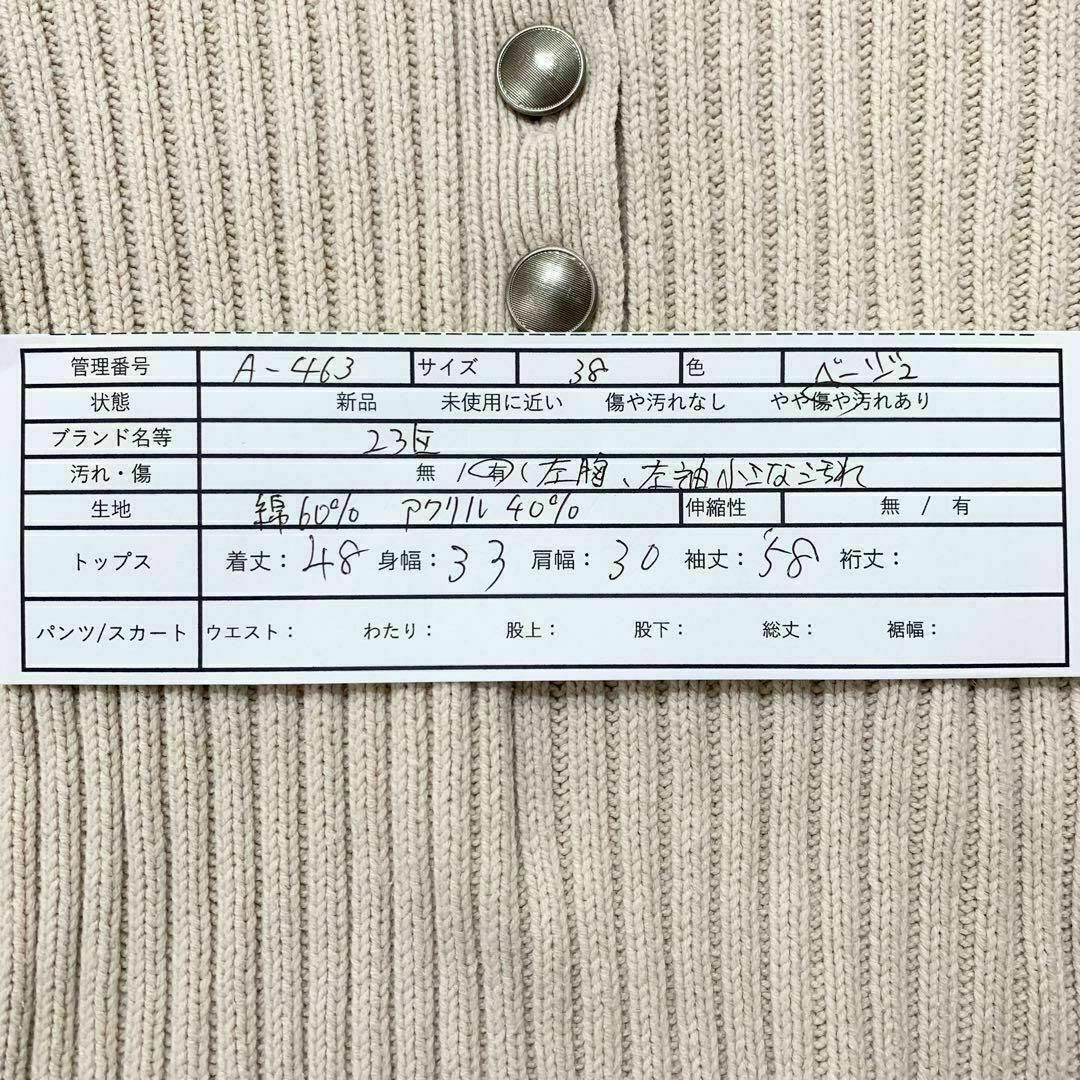 管理番号 A-463 サイズ 38 色 ベージュ
状態 新品 未使用に近い 傷や汚れなし やや傷や汚れあり
ブランド名等 23区
汚れ・傷 無 / 有 ( 左胸、左袖小さな汚れ
生地 綿60% アクリル 40% 伸縮性 無 / 有
トップス 着丈: 48 身幅: 33 肩幅: 30 袖丈: 58 裄丈:
パンツ/スカート ウエスト: わたり: 股上: 股下: 総丈: 裾幅: